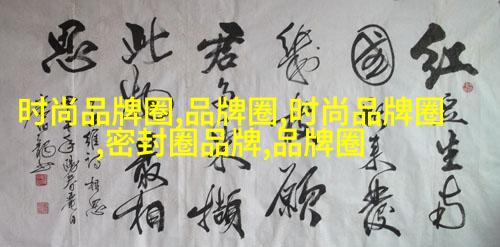 红豆生南
國春来發
幾枝愿
君多采擷
此物最相
思
维诗相思
时尚品牌圈,品牌圈,时尚品牌圈
,密封圈品牌,品牌圈